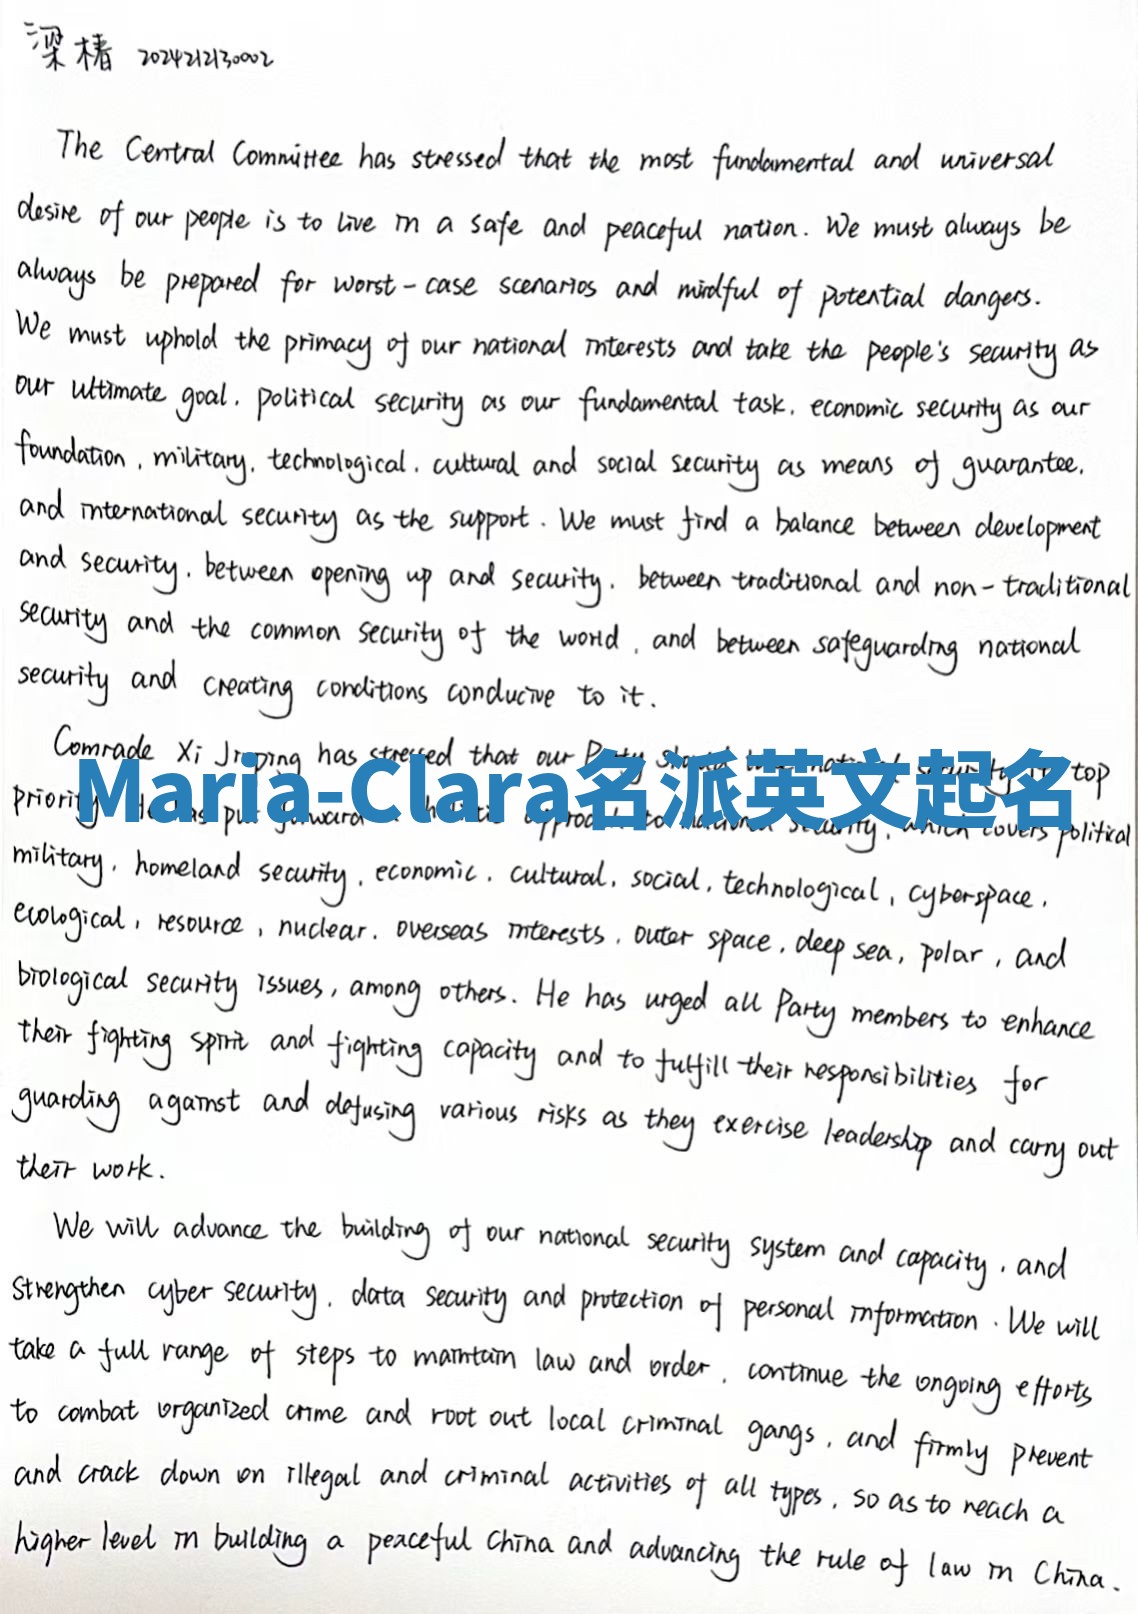 梁椿 2024212130002
The Central Committee has stressed that the most fundamental and universal
desire of our people is to live in a safe and peaceful nation. We must always be
always be prepared for worst-case scenarios and mindful of potential dangers.
We must uphold the primacy of our national interests and take the people's security as
our ultimate goal, political security as our fundamental task, economic security as our
foundation, military, technological, cultural and social security as means of guarantee,
and international security as the support. We must find a balance between development
and security, between opening up and security, between traditional and non-traditional
security and the common security of the world, and between safeguarding national
security and creating conditions conducive to it.
Comrade Xi Jinping has stressed that our Party should national security its top
Maria-Clara名派英文起名
priority put forward approach to national security, which covers political
military, homeland security, economic, cultural, social, technological, cyberspace,
ecological, resource, nuclear, overseas interests, outer space, deep sea, polar, and
biological security issues, among others. He has urged all Party members to enhance
their fighting spirit and fighting capacity and to fulfill their responsibilities for
guarding against and defusing various risks as they exercise leadership and carry out
their work.
We will advance the building of our national security system and capacity, and
strengthen cyber security, data security and protection of personal information. We will
take a full range of steps to maintain law and order, continue the ongoing efforts
to combat organized crime and root out local criminal gangs, and firmly prevent
and crack down on illegal and criminal activities of all types, so as to reach a
higher level in building a peaceful China and advancing the rule of law in China.